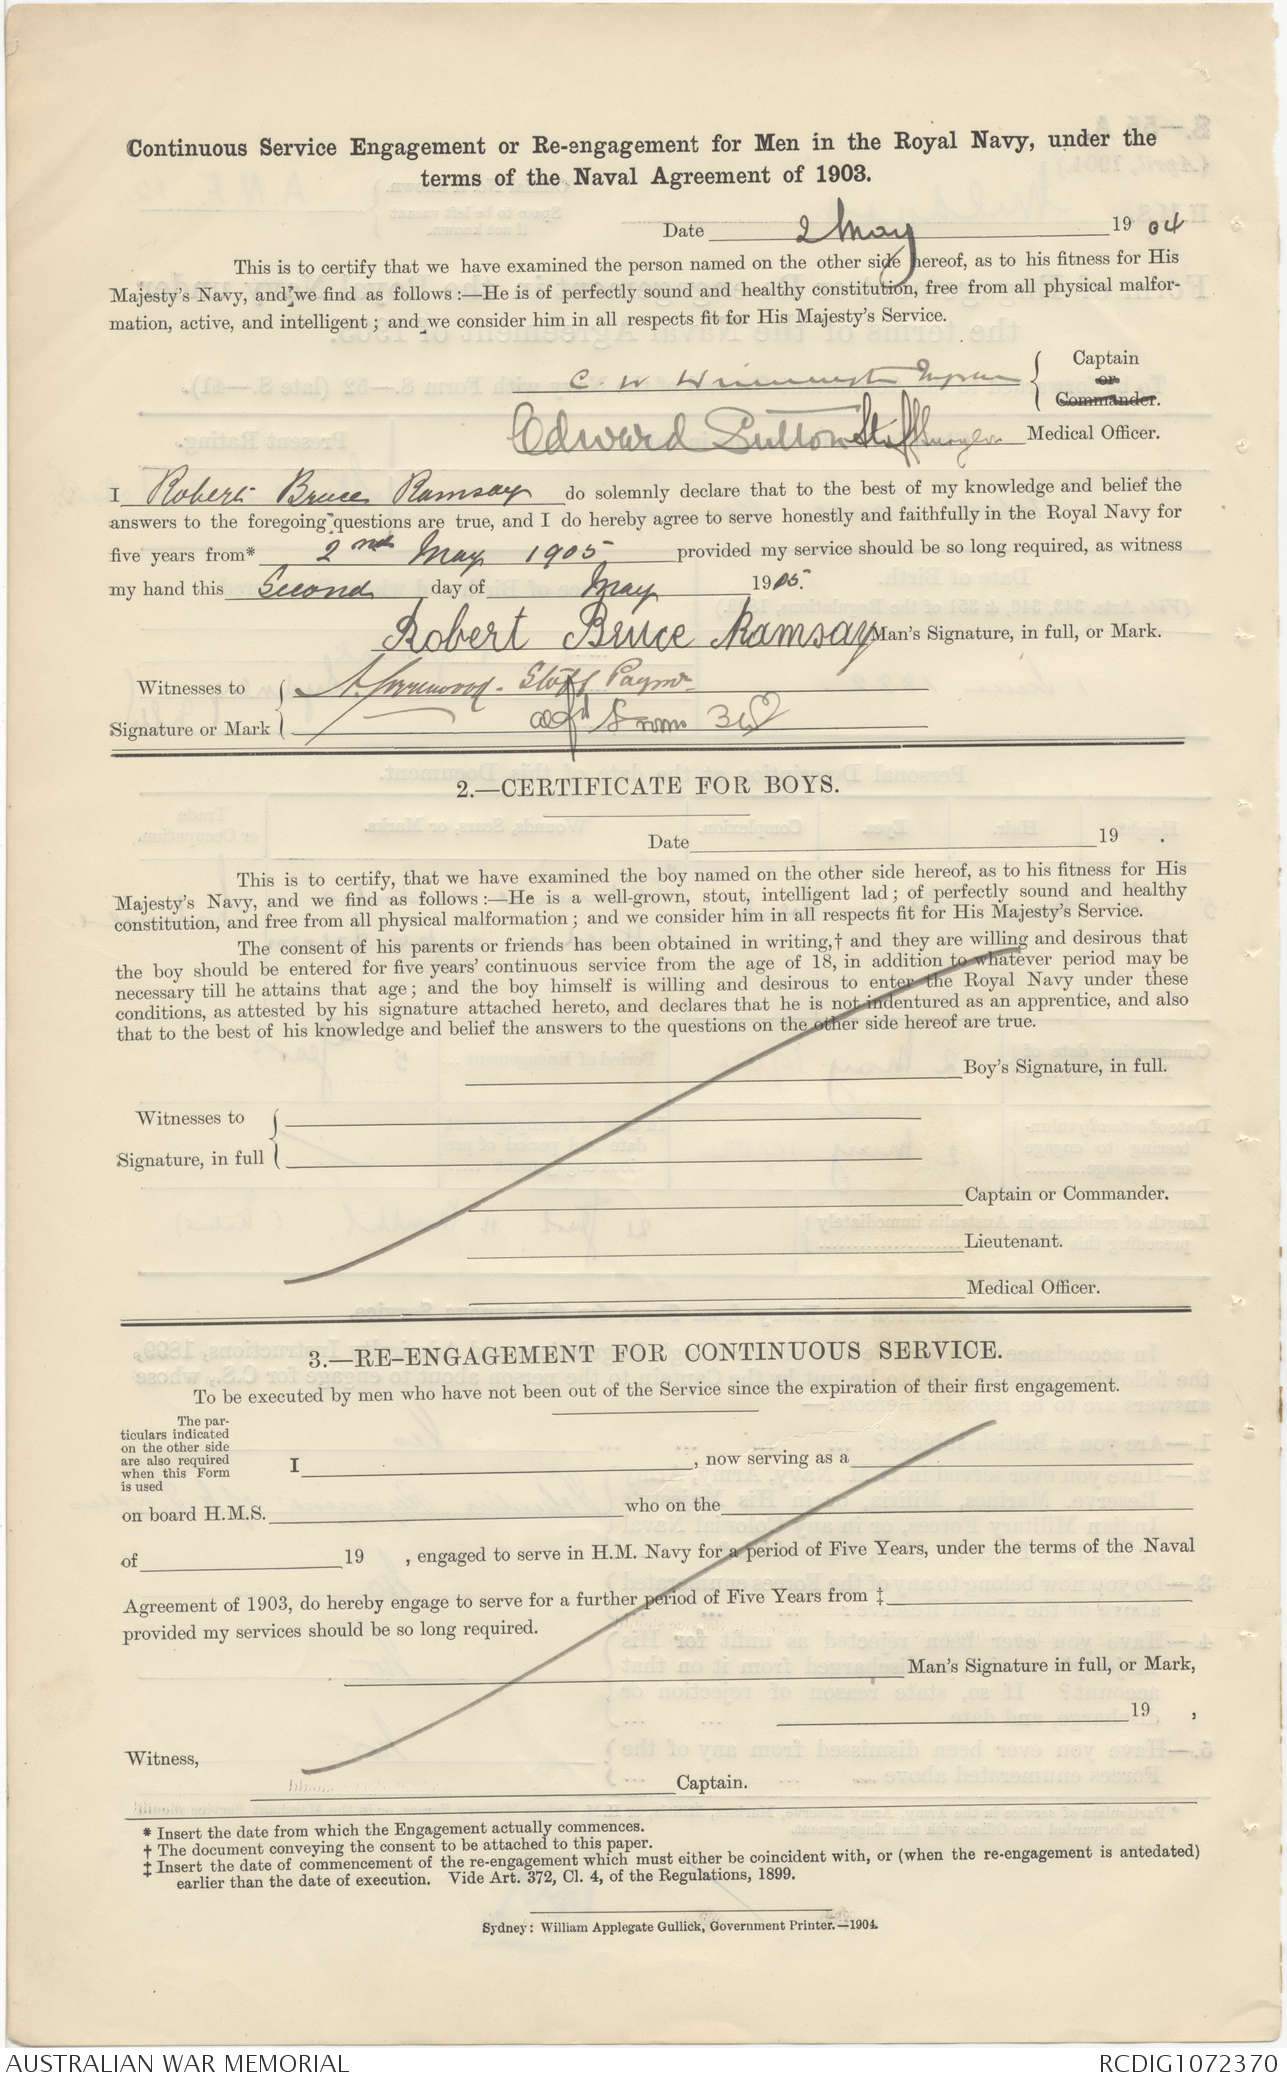 Continuous Service Engagement or Re-engagement for Men in the Royal Navy, under the
terms of the Naval Agreement of 1903.
Date 2 May 1904
This is to certify that we have examined the person named on the other side hereof, as to his fitness for His
Majesty's Navy, and we find as follows:—He is of perfectly sound and healthy constitution, free from all physical malfor-
mation, active, and intelligent; and we consider him in all respects fit for His Majesty's Service.
C. W. Winnington Ingram Captain
or
Commander.
Edward Sutton Staff Surgeon Medical Officer.
I Robert Bruce Ramsay do solemnly declare that to the best of my knowledge and belief the
answers to the foregoing questions are true, and I do hereby agree to serve honestly and faithfully in the Royal Navy for
five years from* 2nd May 1905 provided my service should be so long required, as witness
my hand this Second day of May 1905.
Robert Bruce Ramsay Man's Signature, in full, or Mark.
Witnesses to Staff Paymr
Signature or Mark
2.—CERTIFICATE FOR BOYS.
Date 19 .
This is to certify, that we have examined the boy named on the other side hereof, as to his fitness for His
Majesty's Navy, and we find as follows:—He is a well-grown, stout, intelligent lad; of perfectly sound and healthy
constitution, and free from all physical malformation; and we consider him in all respects fit for His Majesty's Service.
The consent of his parents or friends has been obtained in writing,† and they are willing and desirous that
the boy should be entered for five years' continuous service from the age of 18, in addition to whatever period may be
necessary till he attains that age; and the boy himself is willing and desirous to enter the Royal Navy under these
conditions, as attested by his signature attached hereto, and declares that he is not indentured as an apprentice, and also
that to the best of his knowledge and belief the answers to the questions on the other side hereof are true.
Boy's Signature, in full.
Witnesses to
Signature, in full
Captain or Commander.
Lieutenant.
Medical Officer.
3.—RE-ENGAGEMENT FOR CONTINUOUS SERVICE.
To be executed by men who have not been out of the Service since the expiration of their first engagement.
The par-
ticulars indicated
on the other side
are also required
when this Form
is used
I , now serving as a
on board H.M.S. who on the
of 19 , engaged to serve in H.M. Navy for a period of Five Years, under the terms of the Naval
Agreement of 1903, do hereby engage to serve for a further period of Five Years from ‡
provided my services should be so long required.
Man's Signature in full, or Mark,
19 ,
Witness,
Captain.
* Insert the date from which the Engagement actually commences.
† The document conveying the consent to be attached to this paper.
‡ Insert the date of commencement of the re-engagement which must either be coincident with, or (when the re-engagement is antedated)
earlier than the date of execution. Vide Art. 372, Cl. 4, of the Regulations, 1899.
Sydney: William Applegate Gullick, Government Printer.—1904.
AUSTRALIAN WAR MEMORIAL RCDIG1072370